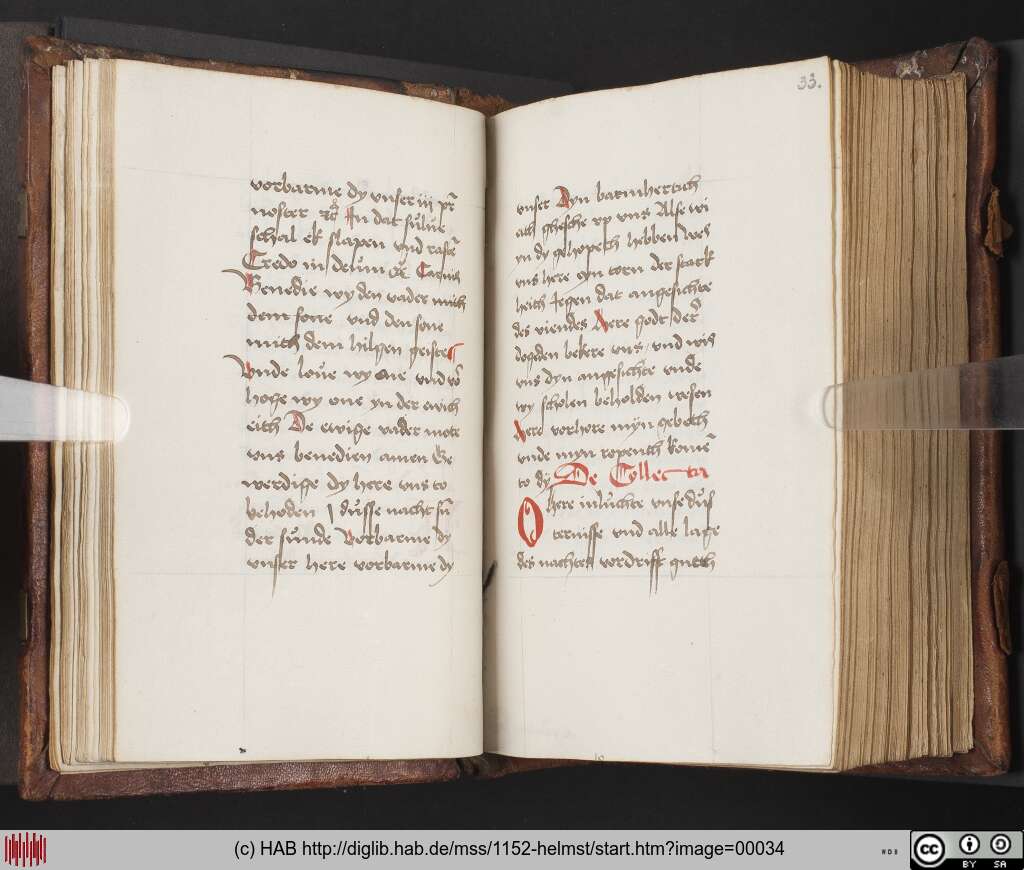 vorbarme dy vnser iii pr̄
noster ⁊cͣ In dat suͤlue
schal ek slapen vnd rastē
Credo in deum ⁊cͣ Carnis
Benedie wy den vader mith
dem sone vnd den sone
mith dem hilgen geiste
Vnde loͤue wy one vnd vͦ
hoge wy one yn der ewich
eith De ewige vader mote
vns benedien amen Ge
werdige dy here vns to
behoden / duͤsse nacht suͤ
der suͤnde Vorbarme dy
vnser here vorbarme dy
33.
vnser Dyn barmherticH
eith ghesche vp vns Alse wi
yn dy gehopeth hebben wes
vns here eyn torn der stark
heith Jegen dat angesichte
des viendes Here godt der
dogeden bekere vns / vnd wiß
vns dyn angesichte vnde
wy scholen beholden wesen
Here vorhore myn gebeth
vnde myn ropenth komē
to dy De Collecta
O here inluͤchte vnse duͤs
ternisse vnd alle lage
des nachtes vordriff gneth
(c) HAB http://diglib.hab.de/mss/1152-helmst/start.htm?image=00034
WDB
cc
BY SA